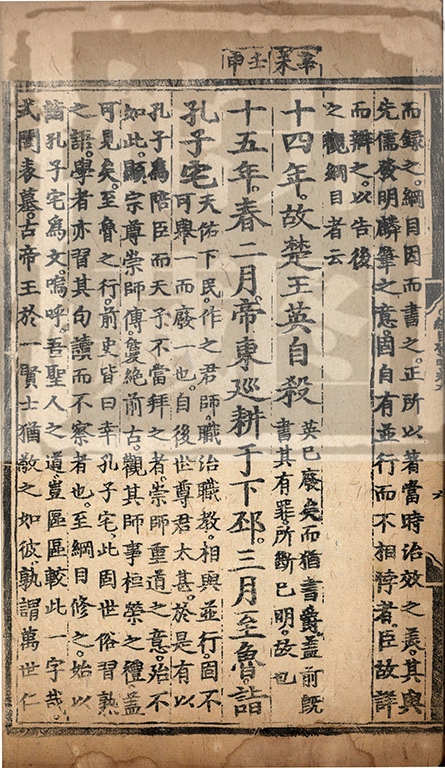 辛未壬申
而録之。綱目因而書之。正所以著當時治效之羙。其與
先儒發明麟筆之意。固自有並行而不相悖者。臣故詳
而辯之。以告後
之觀綱目者云
十四年。故楚王英自殺
英已廢矣而猶書爵。盖前旣
書其有罪。所斷已明。故也
十五年。春二月。帝東廵耕于下邳。三月至魯。詣
孔子宅
天佑下民。作之君師。職治職教。相與並行。固不
可舉一而廢一也。自後世尊君太甚。於是有以
孔子爲陪臣而天子不當拜之者。崇師重道之意。殆不
如此。顯宗尊崇師傅。敻絶前古。觀其師事桓榮之禮。盖
可見矣。至魯之行。前史皆曰幸孔子宅。此固世俗習熟
之語。學者亦習其句讀而不察者也。至綱目修之。始以
詣孔子宅爲文。嗚呼。吾聖人之道豈區區較此一字哉。
式閭表墓。古帝王於一賢士猶敬之如彼。孰謂萬世仁